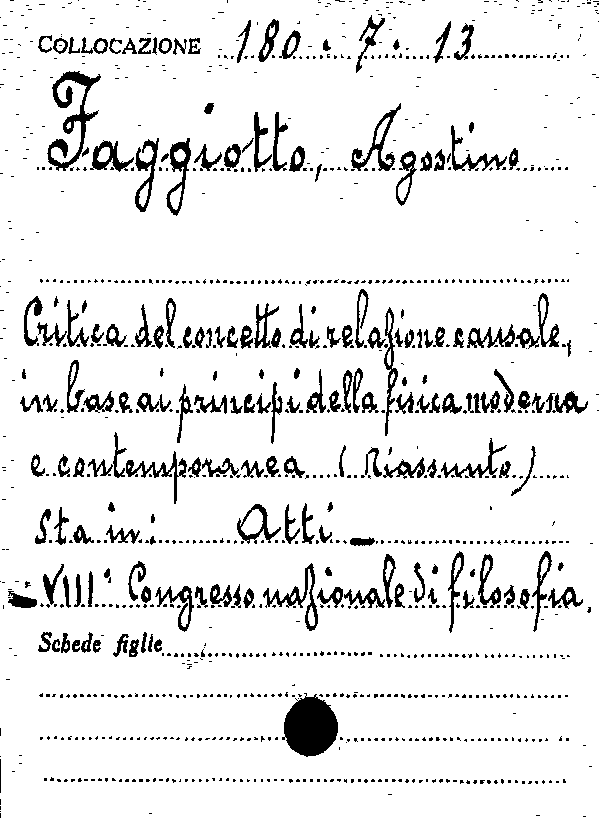 COLLOCAZIONE 180.7.13
Faggiotto, Agostino
Critica del concetto di relazione causale,
in base ai principi della fisica moderna
e contemporanea (Riassunto)
Sta in: Atti -
- VIII° Congresso nazionale di filosofia.
Schede figlie